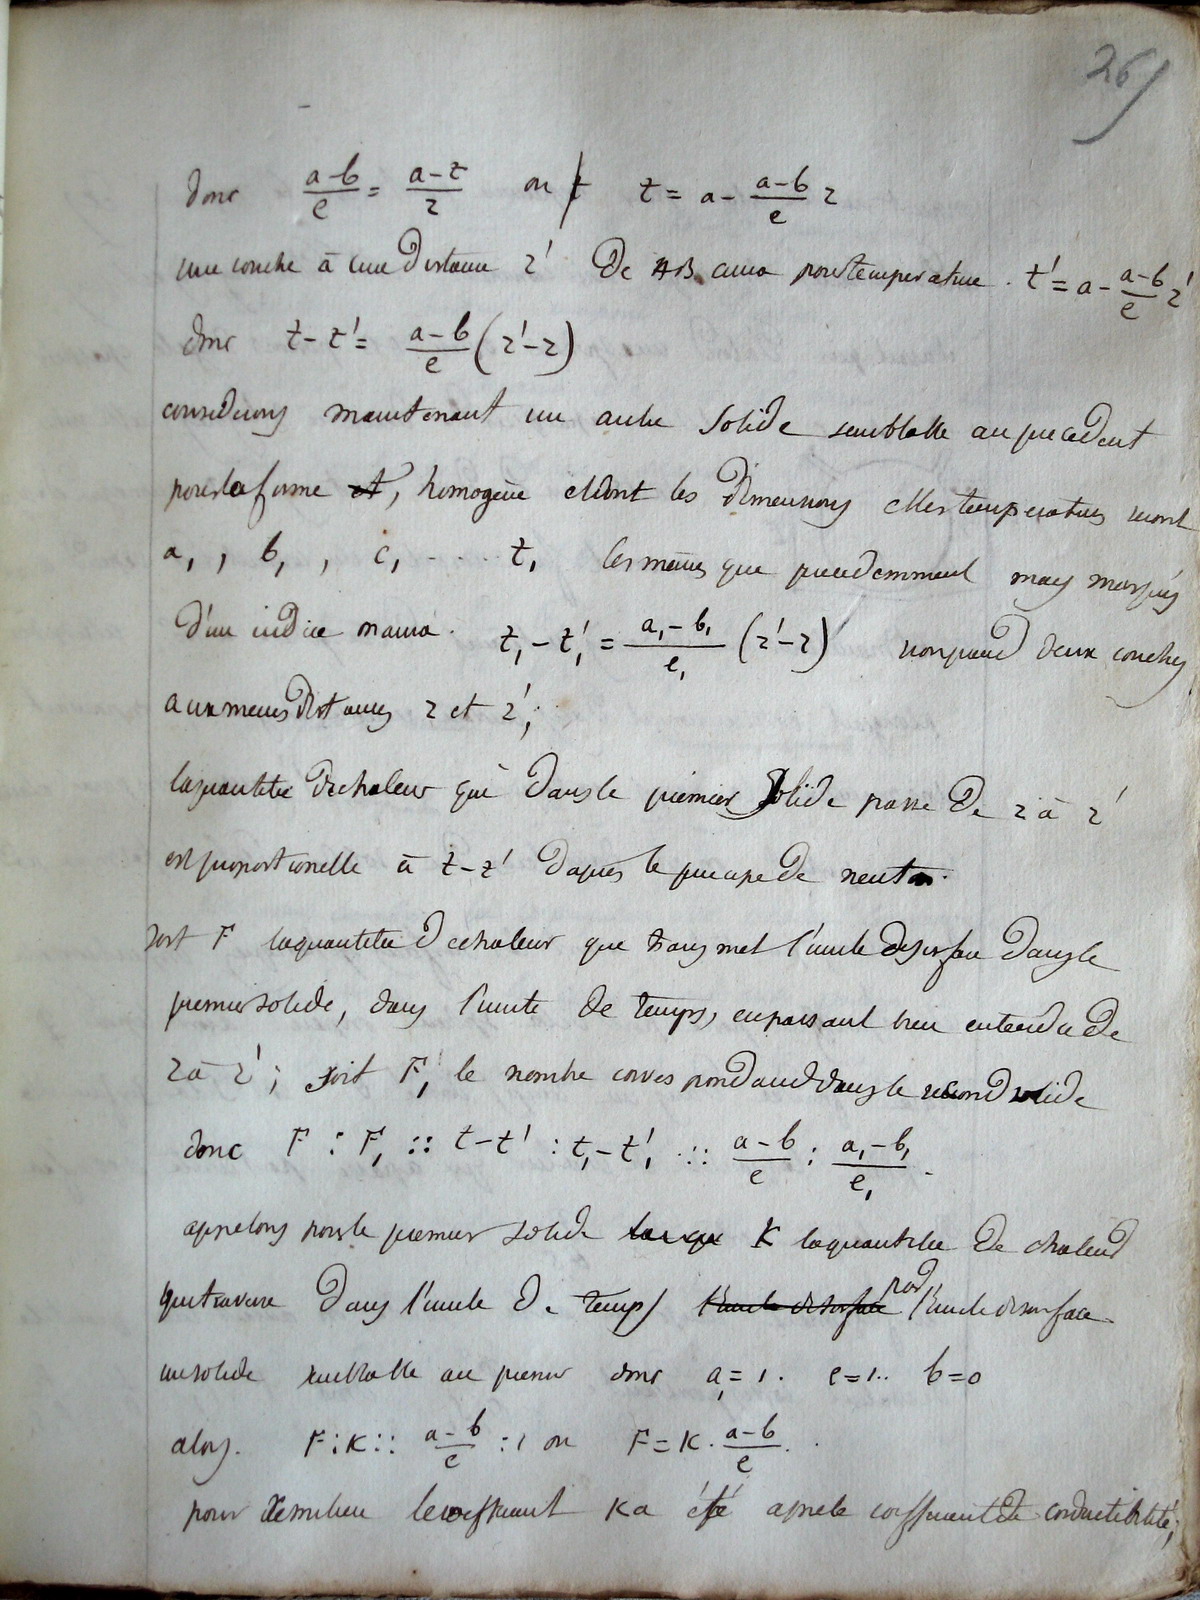 26
donc (a-b)/e = (a-t)/z ou t t = a - (a-b)/e z
une couche à une distance z' de AB aura pour temperature . t' = a - (a-b)/e z'
donc t-t' = (a-b)/e (z'-z)
considerons maintenant un autre solide semblable au precedent
pour la forme et, homogène et dont les dimensions et les temperatures seront
a₁, b₁, e₁ .... t₁ les mêmes que precedemment mais marqués
d'un indice on aura. t₁ - t₁' = (a₁-b₁)/e₁ (z'-z) deux couches
aux memes distances z et z';
la quantitée de chaleur qui dans le premier solide passe de z à z'
est proportionelle à t-t' dapres le principe de neuton.
soit F la quantitée de chaleur que transmet l'unite de surface dans le
premier solide, dans l'unite de temps, en passant bien entendu de
z à z'; soit F₁ le nombre correspondand dans le second solide
donc F : F₁ :: t-t' : t₁-t₁' :: (a-b)/e : (a₁-b₁)/e₁.
appelons pour le premier solide K la quantitée de chaleur
qui traverse dans l'unite de temps l'unite de surface par l'unite de surface
un solide semblable au premier donc a₁ = 1. e=1.. b=0
alors. F : K :: (a-b)/e : 1 ou F = K. (a-b)/e..
pour ce milieu le coefficient K a été appele coefficient de conductibilité;